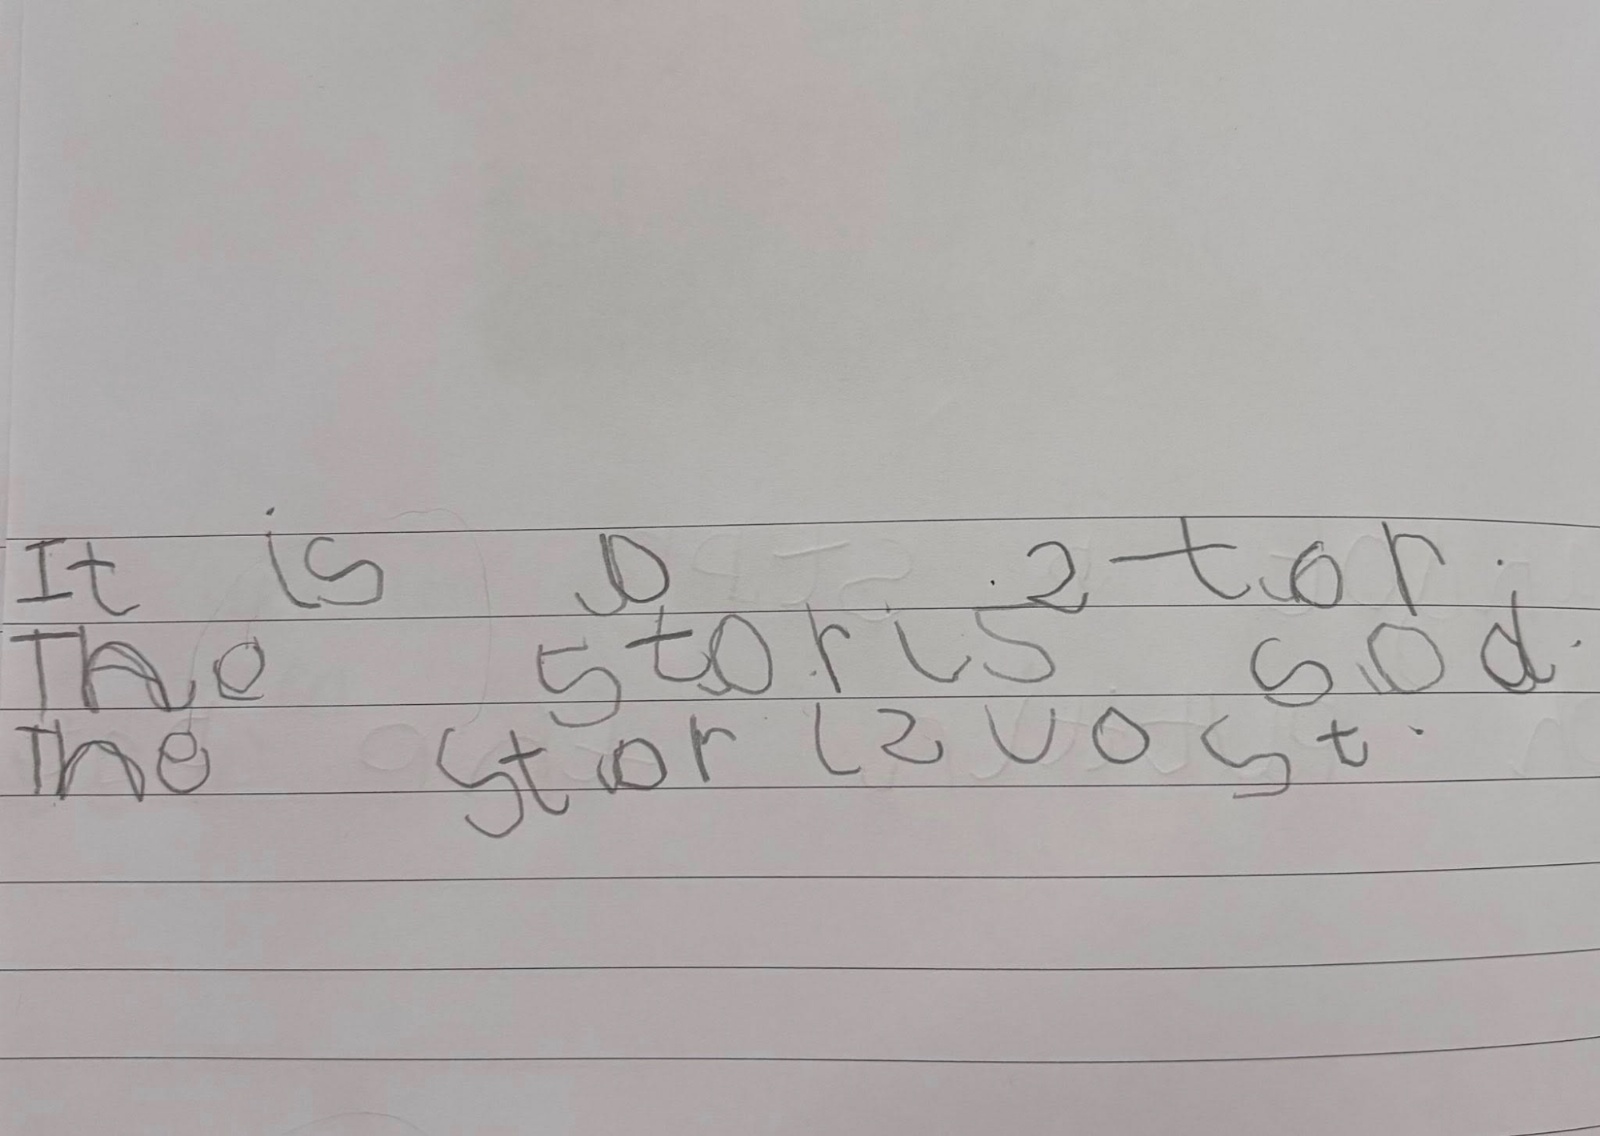 It is a stor.
The stor is sad.
The stor is vost.